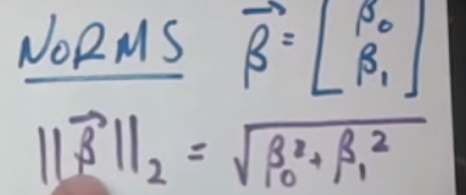 NORMS β⃗ = [β₀ β₁]
||β⃗||₂ = √β₀² + β₁²